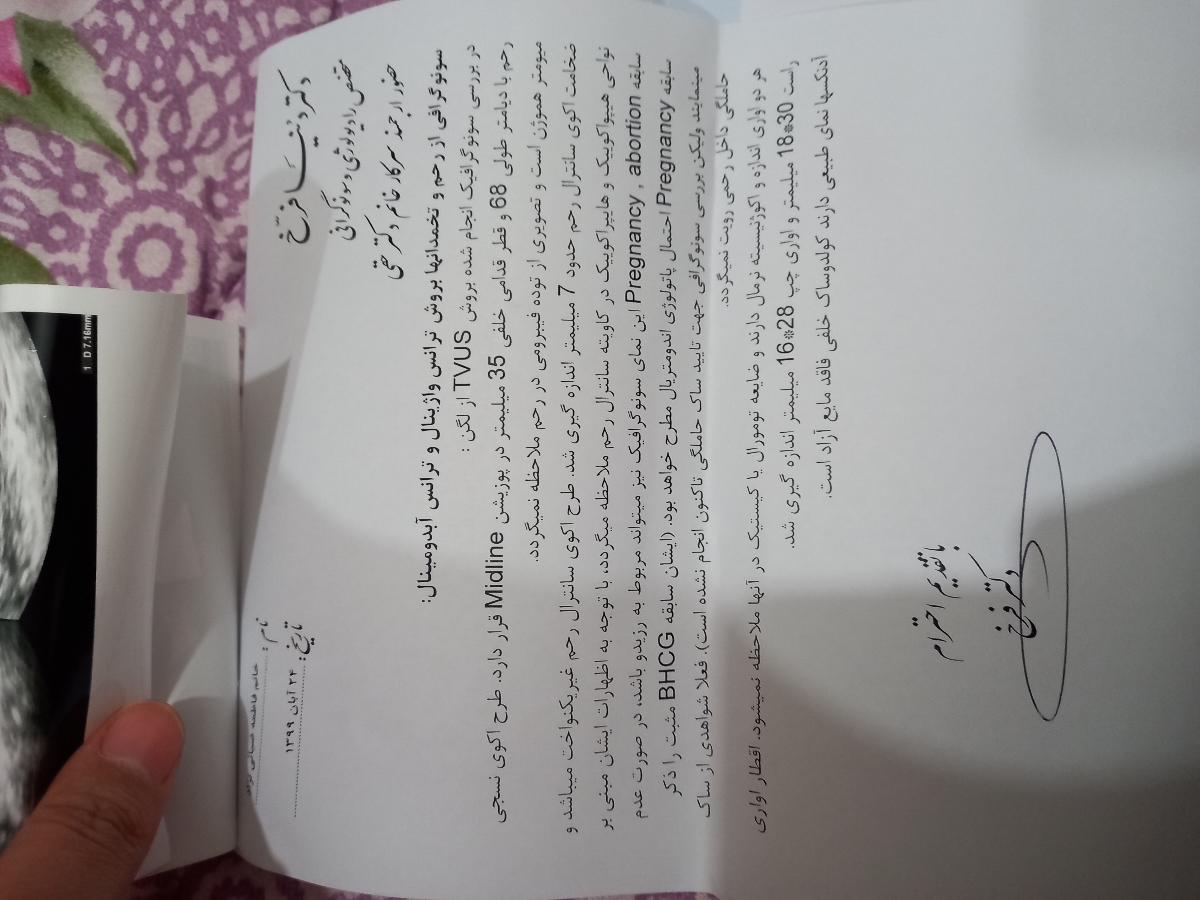 دکتر دنیا فرخ
متخصص رادیولوژی و سونوگرافی
نام : خانم فاطمه
تاریخ : ۲۴ آبان ۱۳۹۹
حضور ارجمند سرکار خانم دکتر
سونوگرافی از رحم و تخمدانها بروش ترانس واژینال و ترانس آبدومینال:
در بررسی سونوگرافیک انجام شده بروش TVUS از لگن :
رحم با دیامتر طولی 68 و قطر قدامی خلفی 35 میلیمتر در پوزیشن Midline قرار دارد. طرح اکوی نسجی
میومتر هموژن است و تصویری از توده فیبرومی در رحم ملاحظه نمیگردد.
ضخامت اکوی سانترال رحم حدود 7 میلیمتر اندازه گیری شد. طرح اکوی سانترال رحم غیریکنواخت میباشد و
نواحی هیپواکوییک و هایپراکوییک در کاویته سانترال رحم ملاحظه میگردد، با توجه به اظهارات ایشان مبنی بر
سابقه Pregnancy , abortion این نمای سونوگرافیک نیز میتواند مربوط به رزیدو باشد، در صورت عدم
سابقه Pregnancy احتمال پاتولوژی اندومتریال مطرح خواهد بود. (ایشان سابقه BHCG مثبت را ذکر
مینمایند ولیکن بررسی سونوگرافی جهت تایید ساک حاملگی تاکنون انجام نشده است). فعلا شواهدی از ساک
حاملگی داخل رحمی رویت نمیگردد.
هر دو اواری اندازه و اکوژنیسیته نرمال دارند و ضایعه تومورال یا کیستیک در آنها ملاحظه نمیشود. اقطار اواری
راست 30*18 میلیمتر و اواری چپ 28*16 میلیمتر اندازه گیری شد.
آدنکسها نمای طبیعی دارند کولدوساک خلفی فاقد مایع آزاد است.
با تقدیم احترام
دکتر فرخ
1 D 7.16mm